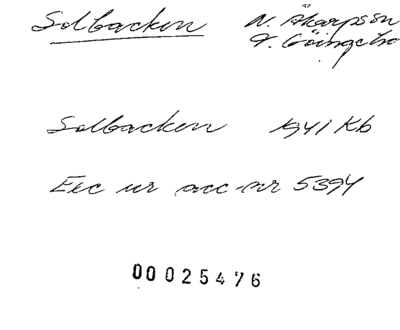 Solbacken N. Åkarps sn
V. Göinge hd
Solbacken 1941 Kb
Exc ur acc-nr 5394
00025476